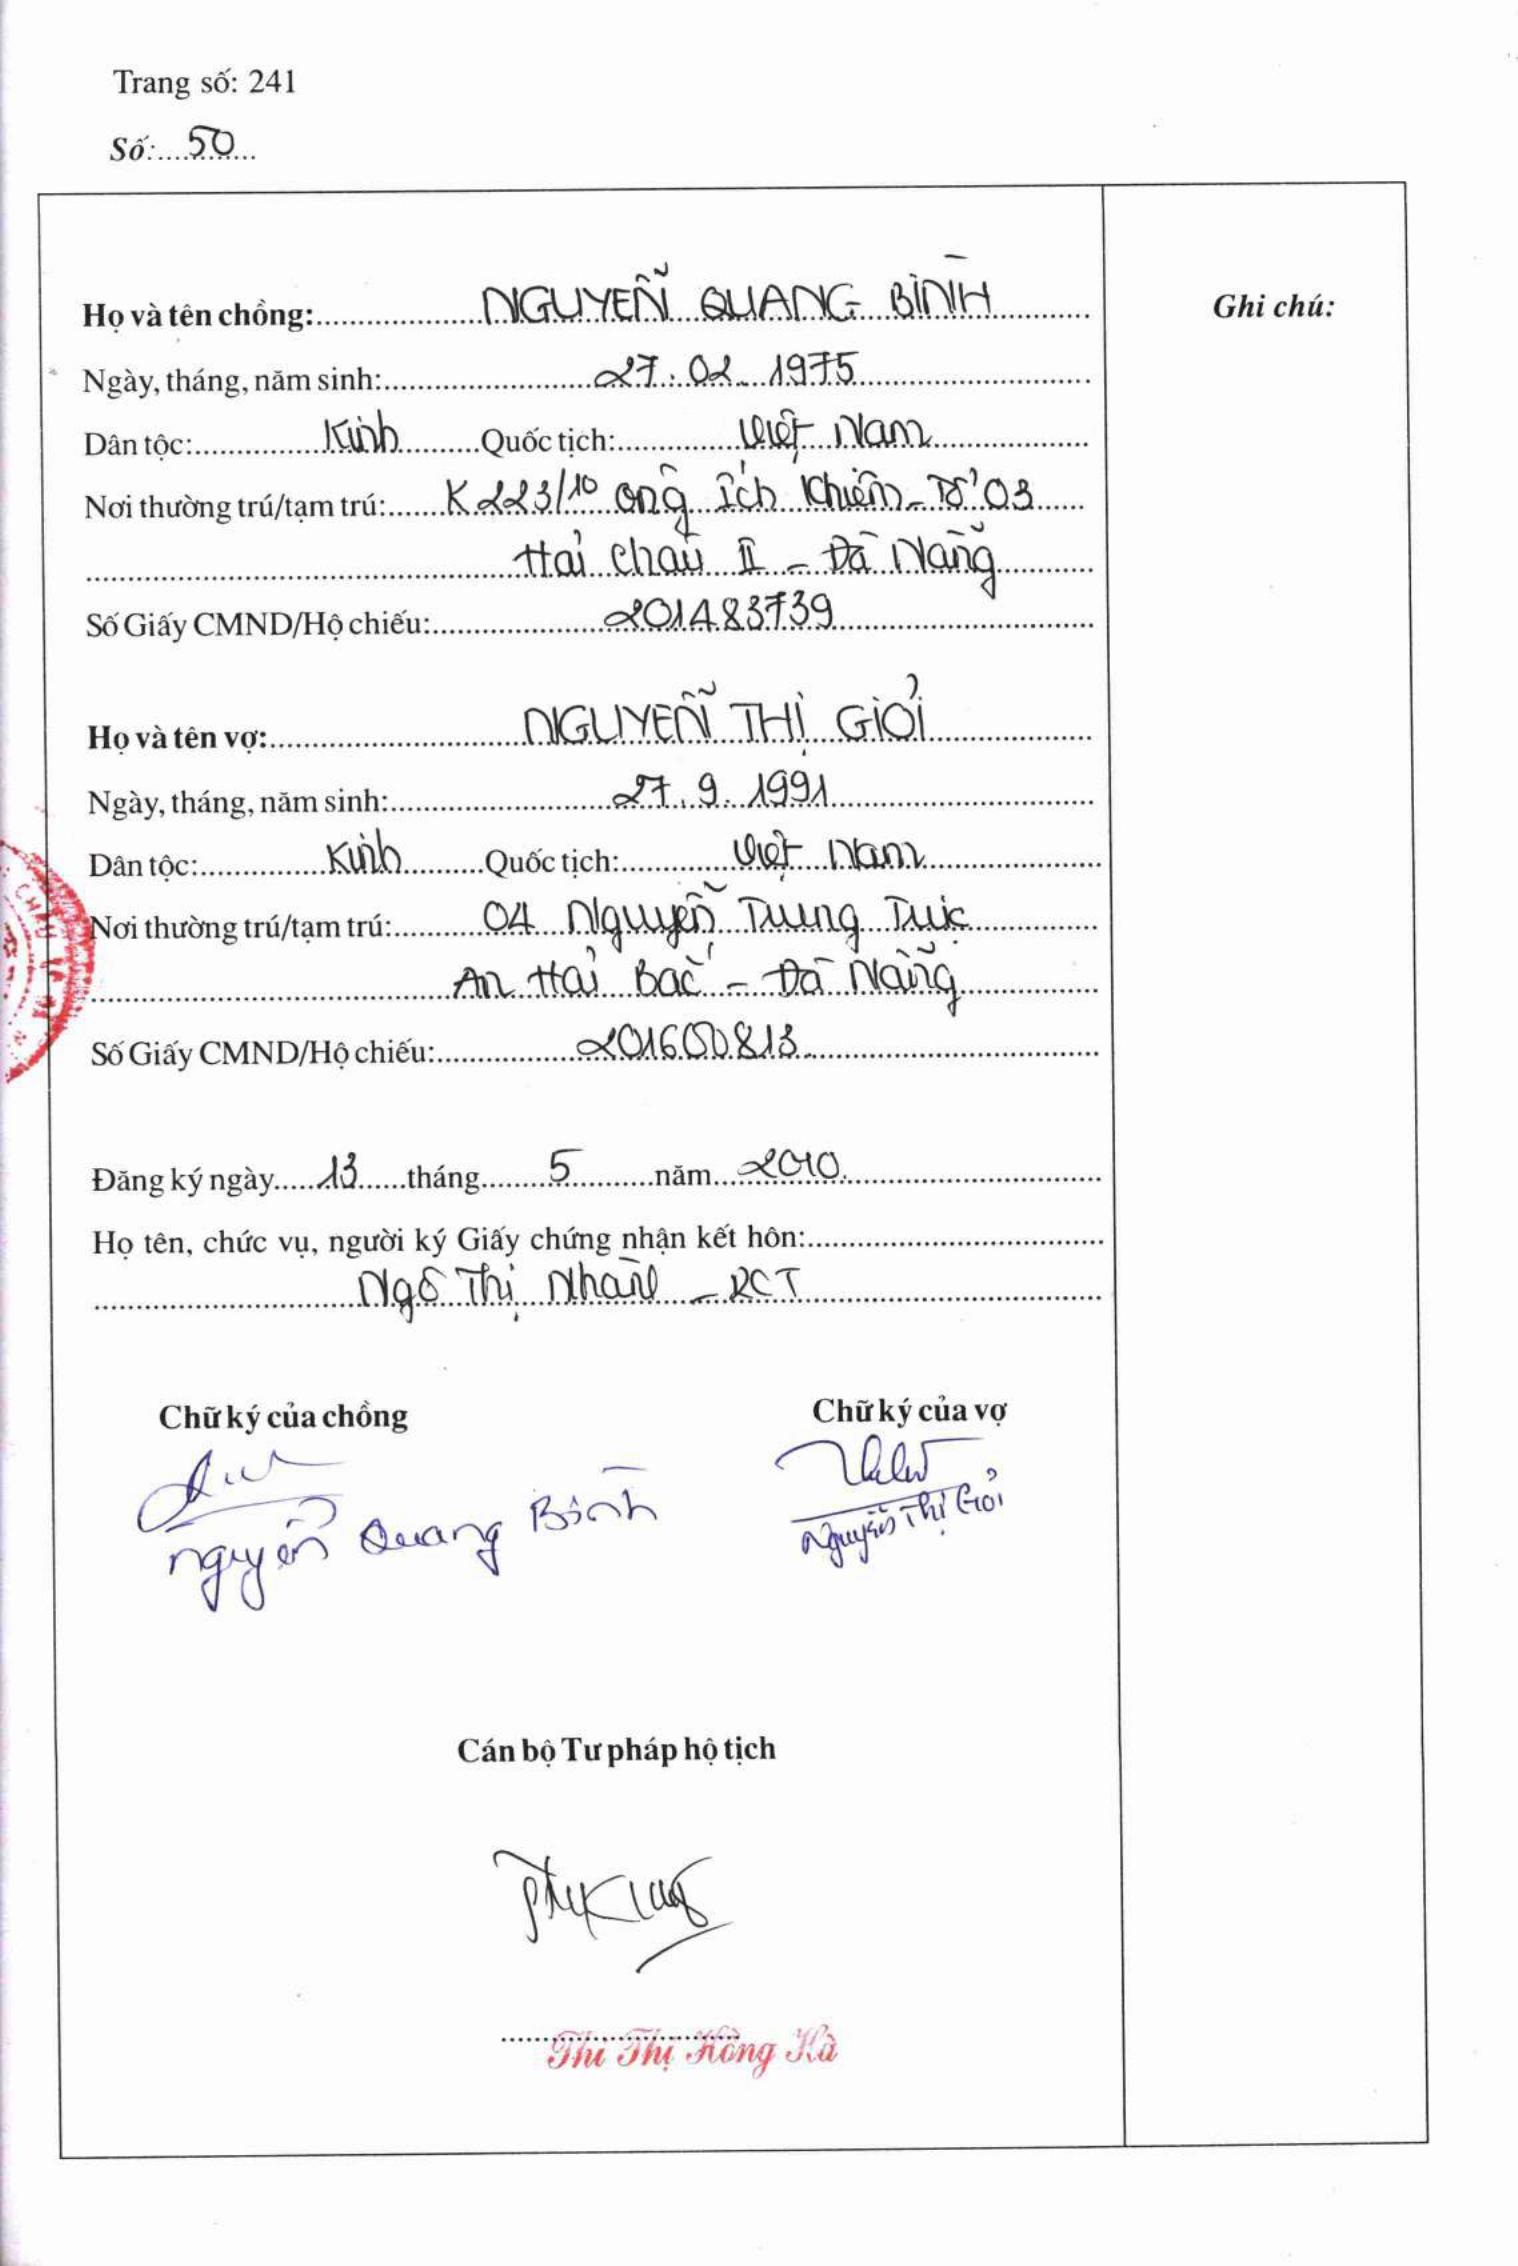 Trang số: 241
Số: 50
Ghi chú:
Họ và tên chồng: NGUYỄN QUANG BÌNH
Ngày, tháng, năm sinh: 27.02.1975
Dân tộc: Kinh Quốc tịch: Việt Nam
Nơi thường trú/tạm trú: K223/10 Ông Ích Khiêm - Tổ 03
Hải Châu II - Đà Nẵng
Số Giấy CMND/Hộ chiếu: 201483739
Họ và tên vợ: NGUYỄN THỊ GIỎI
Ngày, tháng, năm sinh: 27.9.1991
Dân tộc: Kinh Quốc tịch: Việt Nam
Nơi thường trú/tạm trú: 04 Nguyễn Trung Trực
An Hải Bắc - Đà Nẵng
Số Giấy CMND/Hộ chiếu: 201600813
Đăng ký ngày 13 tháng 5 năm 2010
Họ tên, chức vụ, người ký Giấy chứng nhận kết hôn:
Ngô Thị - PCT
Chữ ký của chồng Chữ ký của vợ
Nguyễn Quang Bình Nguyễn Thị Giỏi
Cán bộ Tư pháp hộ tịch
Thi Thị Hồng Hà